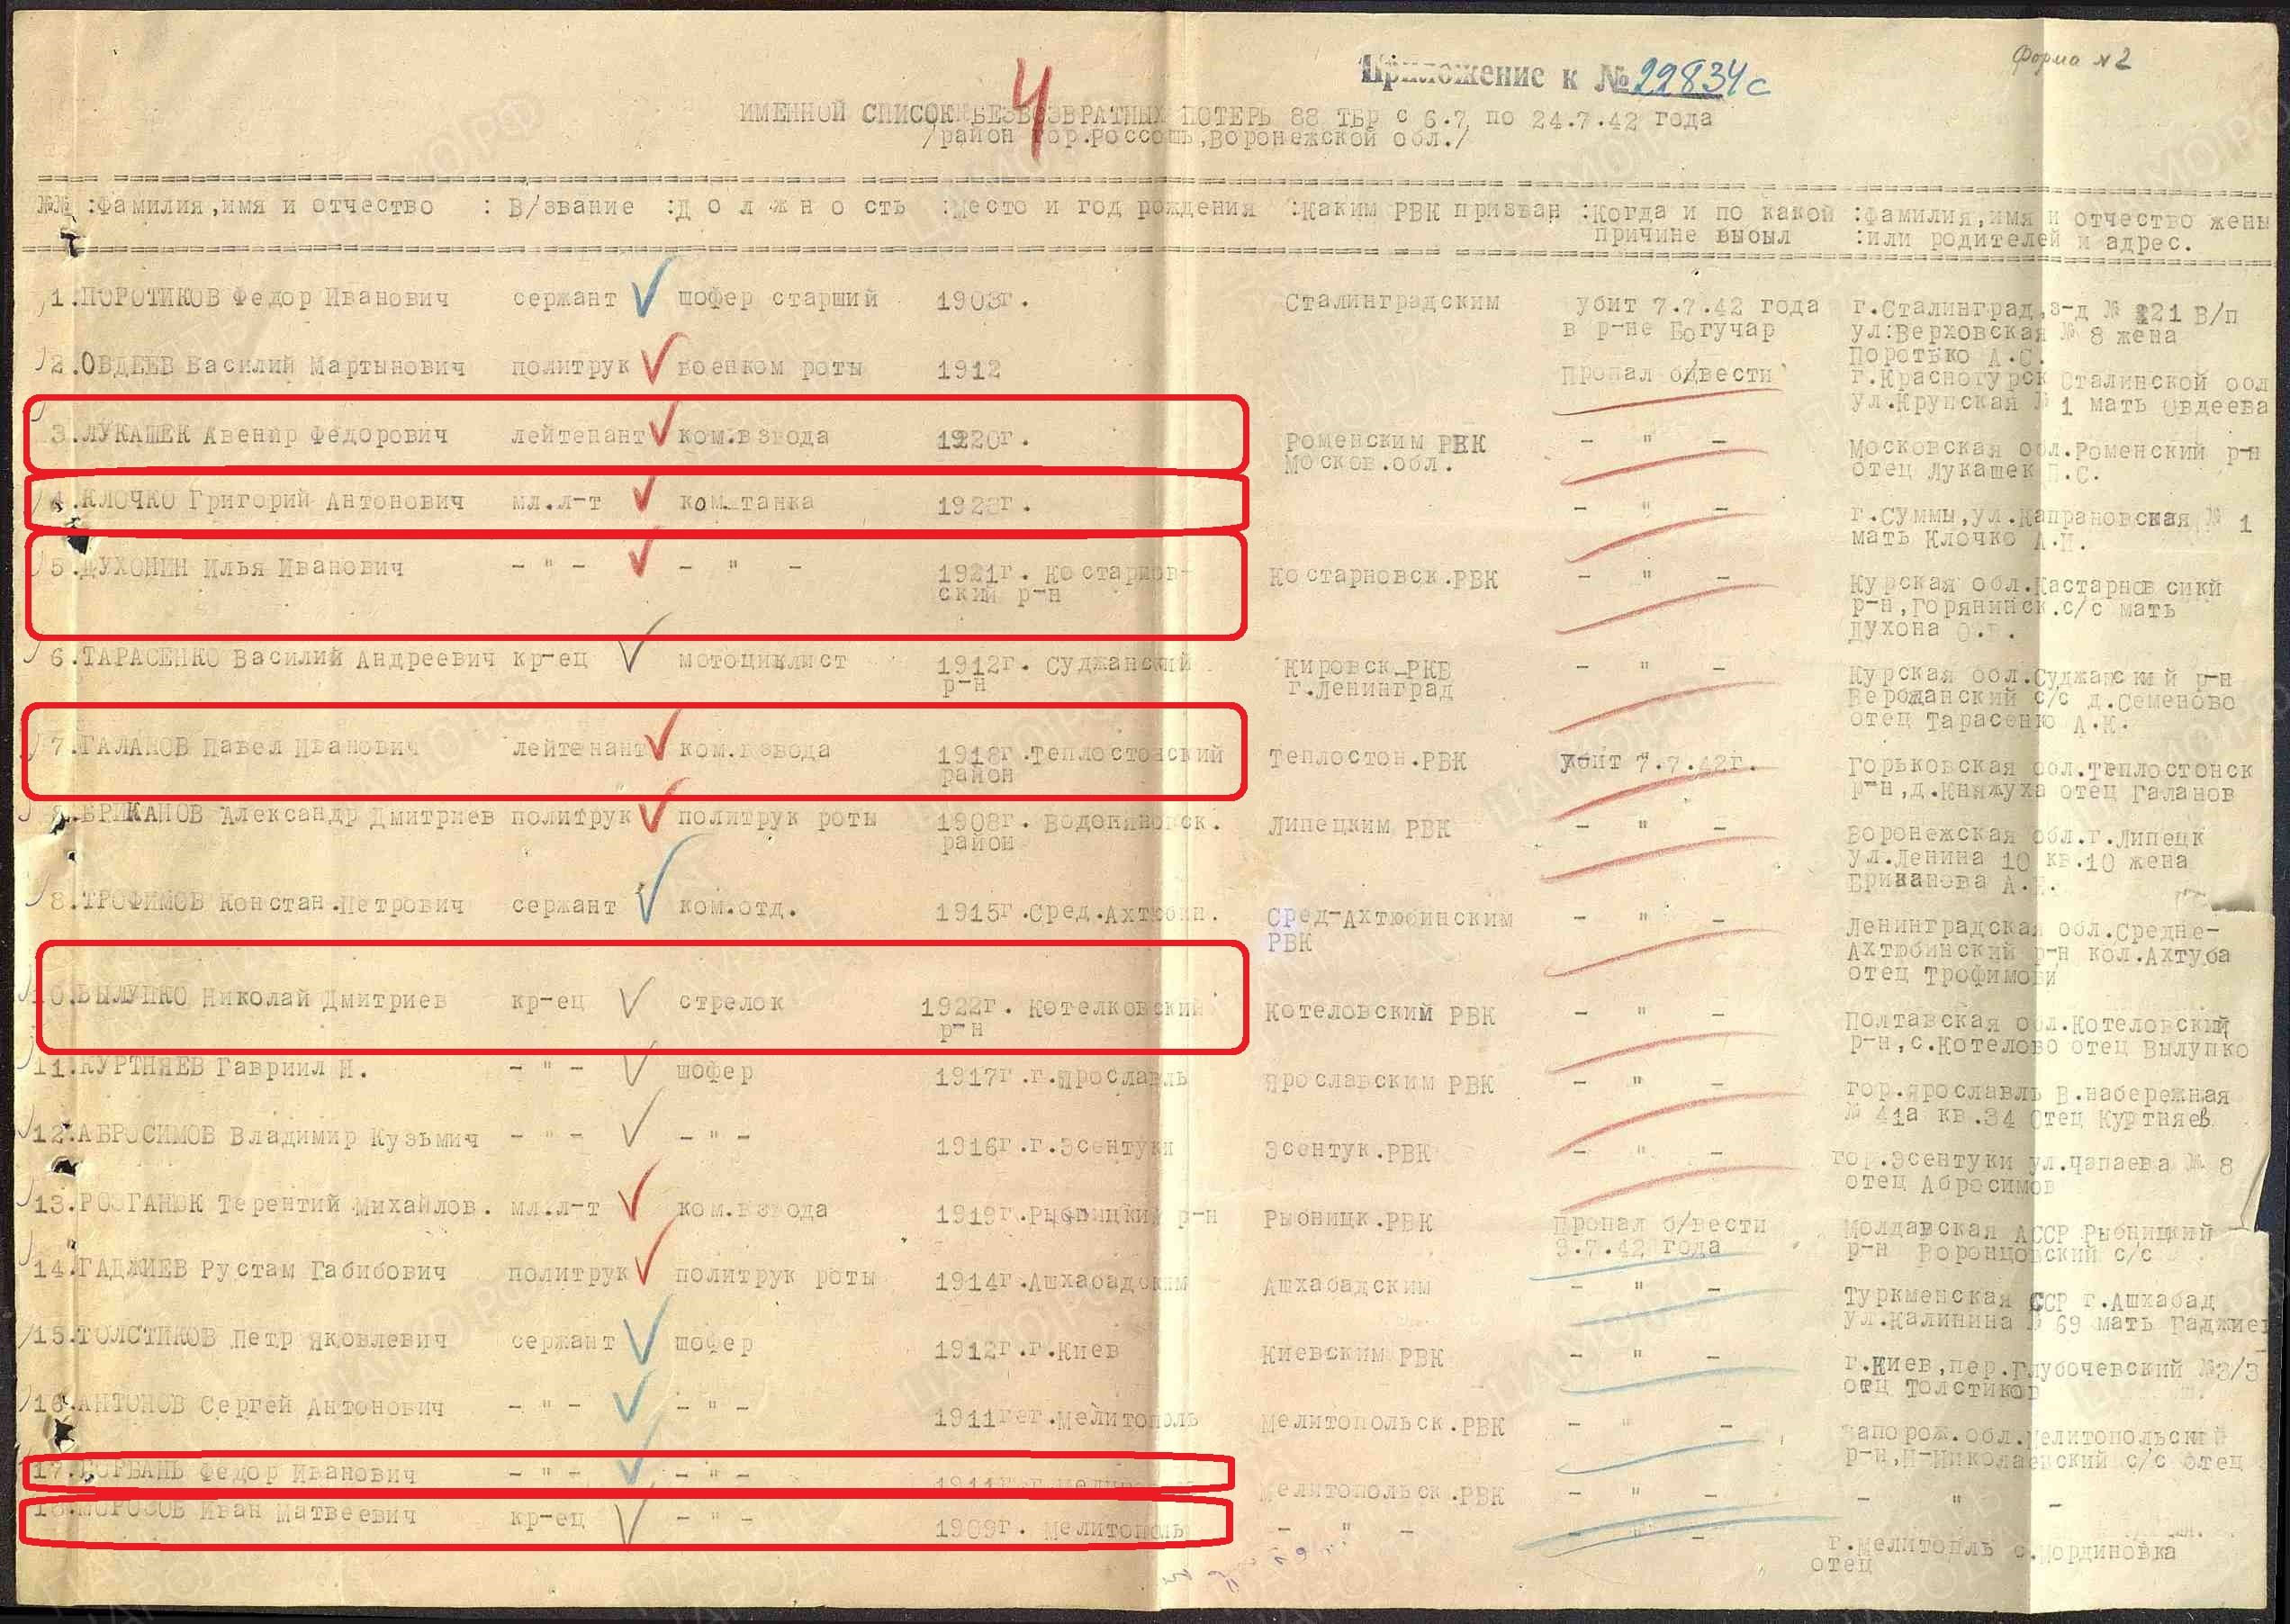 Форма № 2
Приложение к № 22834с
4
ИМЕННОЙ СПИСОК БЕЗВОЗВРАТНЫХ ПОТЕРЬ 88 ТБР с 6.7 по 24.7.42 года
/район гор.Россошь,Воронежской обл./
№№ :Фамилия,имя и отчество : В/звание :Д о л ж н о сть :Место и год рождения :Каким РВК призван :Когда и по какой :Фамилия,имя и отчество жены
причине выбыл :или родителей и адрес.
1.ПОРОТИКОВ Федор Иванович сержант шофер старший 1903г. Сталинградским убит 7.7.42 года г.Сталинград,з-д № 221 В/п
в р-не Богучар ул:Верховская № 8 жена
Поротько А.С.
2.ОВДЕЕВ Василий Мартынович политрук военком роты 1912 Пропал б/вести г.Красногурск Сталинской обл
ул.Крупская № 1 мать Овдеева
3.ЛУКАШЕК Авенир Федорович лейтенант ком.взвода 1920г. Роменским РВК - " - Московская обл.Роменский р-н
Москов.обл. отец Лукашек П.С.
4.КЛОЧКО Григорий Антонович мл.л-т ком.танка 1922г. - " - г.Суммы,ул.Капрановская № 1
мать Клочко А.И.
5.ДУХОНЕН Илья Иванович - " - - " - 1921г. Костарнов- Костарновск.РВК - " - Курская обл.Кастарновсикй
ский р-н р-н,Горянинск.с/с мать
Духона О.
6.ТАРАСЕНКО Василий Андреевич кр-ец мотоциклист 1912г. Суджанский Кировск-РКВ - " - Курская обл.Суджанский р-н
р-н г.Ленинград Верожанский с/с д.Семеново
отец Тарасенко А.К.
7.ГАЛАНОВ Павел Иванович лейтенант ком.взвода 1918г.Теплостонский Теплостон.РВК убит 7.7.42г. Горьковская обл.Теплостонск
район р-н,д.Княжуха отец Галанов
БРИКАНОВ Александр Дмитриев политрук политрук роты 1908г. Водоняновск. Липецким РВК - " - Воронежская обл.г.Липецк
район ул.Ленина 10 кв.10 жена
Бриканова А.
8.ТРОФИМОВ Констан.Петрович сержант ком.отд. 1915г.Сред.Ахтюбин. Сред-Ахтюбинским - " - Ленинградская обл.Средне-
РВК Ахтюбинский р-н кол.Ахтуба
отец Трофимови
10.ВЫЛУПКО Николай Дмитриев кр-ец стрелок 1922г. Котелковский Котеловский РВК - " - Полтавская обл.Котеловский
р-н р-н,с.Котелово отец Вылупко
11.КУРТНЯЕВ Гавриил Н. - " - шофер 1917г.г.Ярославль Ярославским РВК - " - гор.Ярославль В.набережная
№ 41а кв.34 Отец Куртняев
12.АБРОСИМОВ Владимир Кузьмич - " - - " - 1916г.г.Эсентуки Эсентук.РВК - " - гор.Эсентуки ул.Чапаева № 8
отец Абросимов
13.РОЗГАНЮК Терентий Михайлов. мл.л-т ком.взвода 1919г.Рыбницкий р-н Рыбницк.РВК Пропал б/вести Молдавская АССР Рыбницкий
9.7.42 года р-н Воронцовский с/с
14.ГАДЖИЕВ Рустам Габибович политрук политрук роты 1914г.Ашхабадским Ашхабадским - " - Туркменская ССР г.Ашхабад
ул.Калинина № 69 мать Гаджиев
15.ТОЛСТИКОВ Петр Яковлевич сержант шофер 1912г.г.Киев Киевским РВК - " - г.Киев,пер.Глубочевский №3/3
отц Толстиков
16.АНТОНОВ Сергей Антонович - " - - " - 1911гег.Мелитополь Мелитопольск.РВК - " - Запорож.обл.Мелитопольский
р-н,Н-Николаевский с/с отец
17.ГОРБАНЬ Федор Иванович - " - - " - 1911г. Мелитопольск.РВК - " - - " -
18.МОРОЗОВ Иван Матвеевич кр-ец - " - 1909г. Мелитополь - " - - " - г.Мелитопль с.Мординовка
отец